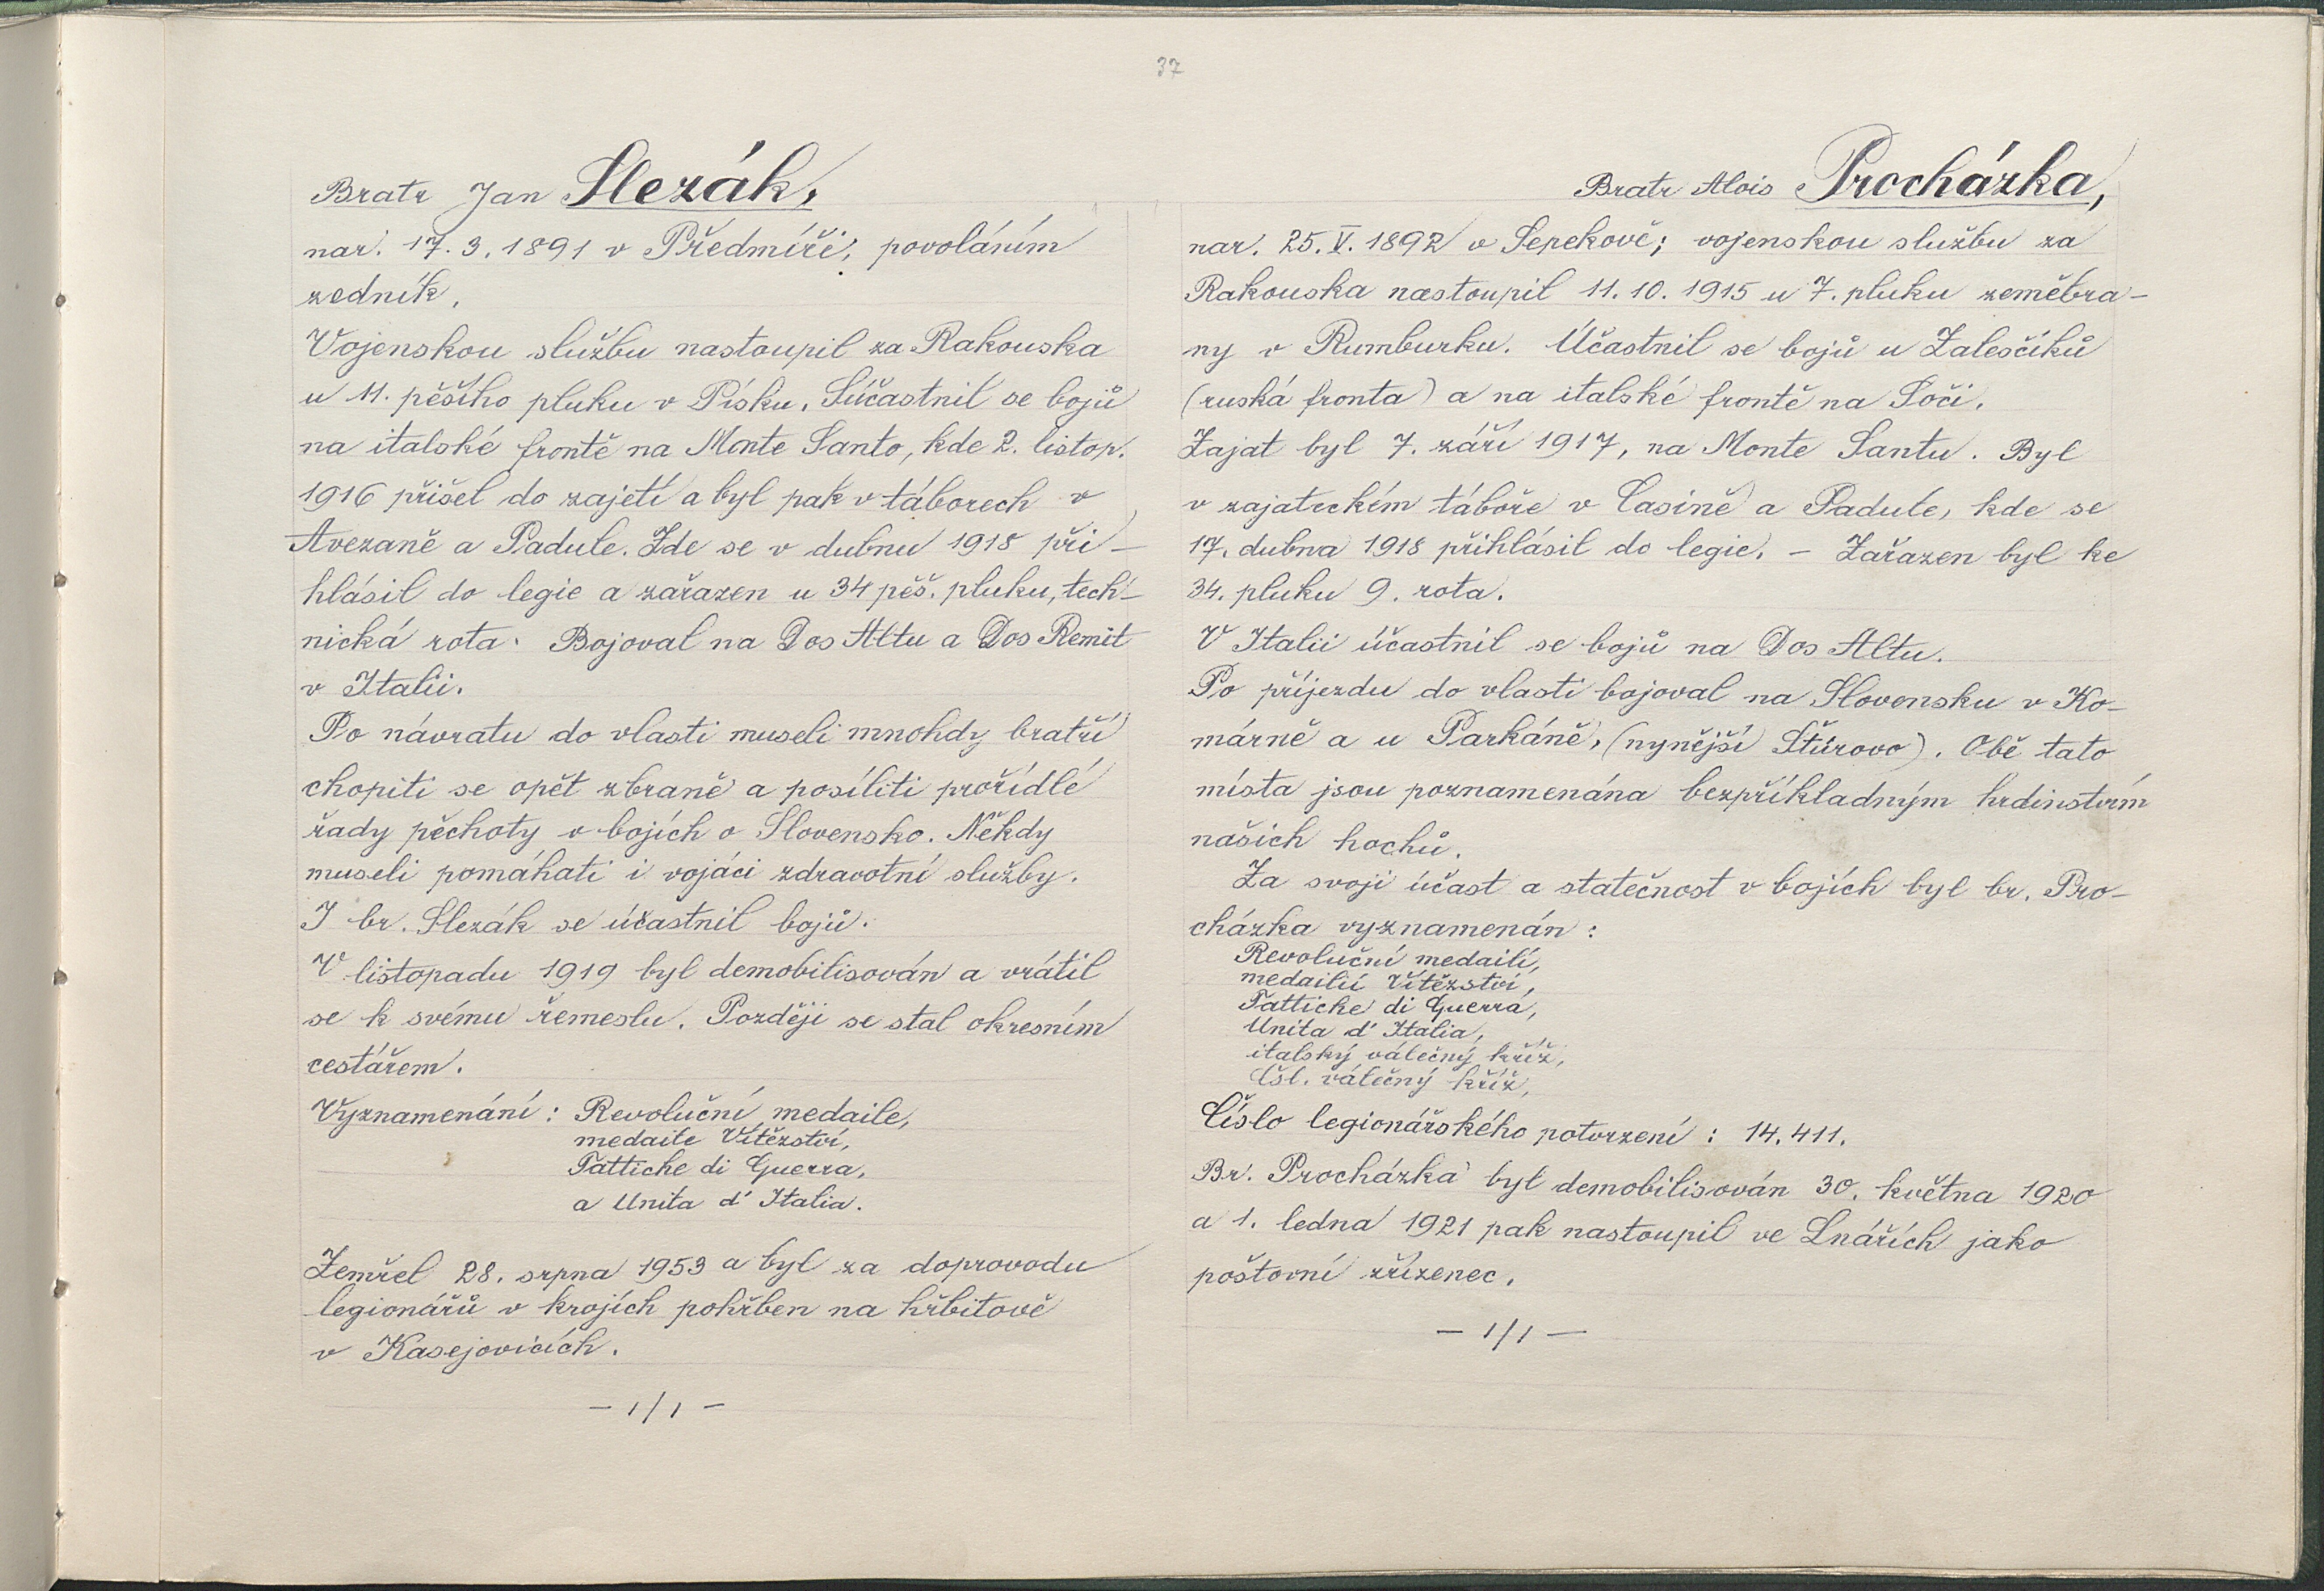 37
Bratr Jan Slezák,
nar. 17.3.1891 v Předmíři, povoláním
zedník.
Vojenskou službu nastoupil za Rakouska
u 11. pěšího pluku v Písku. Súčastnil se bojů
na italské frontě na Monte Santo, kde 2. listop.
1916 přišel do zajetí a byl pak v táborech v
Avezaně a Padule. Zde se v dubnu 1918 při-
hlásil do legie a zařazen u 34 pěš. pluku, tech-
nická rota. Bojoval na Dos Altu a Dos Remit
v Italii.
Po návratu do vlasti museli mnohdy bratří
chopiti se opět zbraně a posíliti prořídlé
řady pěchoty v bojích o Slovensko. Někdy
museli pomáhati i vojáci zdravotní služby.
I br. Slezák se účastnil bojů.
V listopadu 1919 byl demobilisován a vrátil
se k svému řemeslu. Později se stal okresním
cestářem.
Vyznamenání: Revoluční medaile,
medaile Vítězství,
Fattiche di Guerra,
a Unita d' Italia.
Zemřel 28. srpna 1953 a byl za doprovodu
legionářů v krojích pohřben na hřbitově
v Kasejovicích.
- 1/1 -
Bratr Alois Procházka,
nar. 25.V.1892 v Sepekově; vojenskou službu za
Rakouska nastoupil 11.10.1915 u 7. pluku zeměbra-
ny v Rumburku. Účastnil se bojů u Zalesčíků
(ruská fronta) a na italské frontě na Soči.
Zajat byl 7. září 1917, na Monte Santu. Byl
v zajateckém táboře v Casině a Padule, kde se
17. dubna 1918 přihlásil do legie. - Zařazen byl ke
34. pluku 9. rota.
V Italii účastnil se bojů na Dos Altu.
Po příjezdu do vlasti bojoval na Slovensku v Ko-
márně a u Parkáně, (nynější Štúrovo). Obě tato
místa jsou poznamenána bezpříkladným hrdinstvím
našich hochů.
Za svoji účast a statečnost v bojích byl br. Pro-
cházka vyznamenán:
Revoluční medailí,
medailií Vítězství,
Fattiche di Guerra,
Unita d' Italia,
italský válečný kříž,
Čsl. válečný kříž,
Číslo legionářského potvrzení: 14.411.
Br. Procházka byl demobilisován 30. května 1920
a 1. ledna 1921 pak nastoupil ve Lnářích jako
poštovní zřízenec.
- 1/1 -